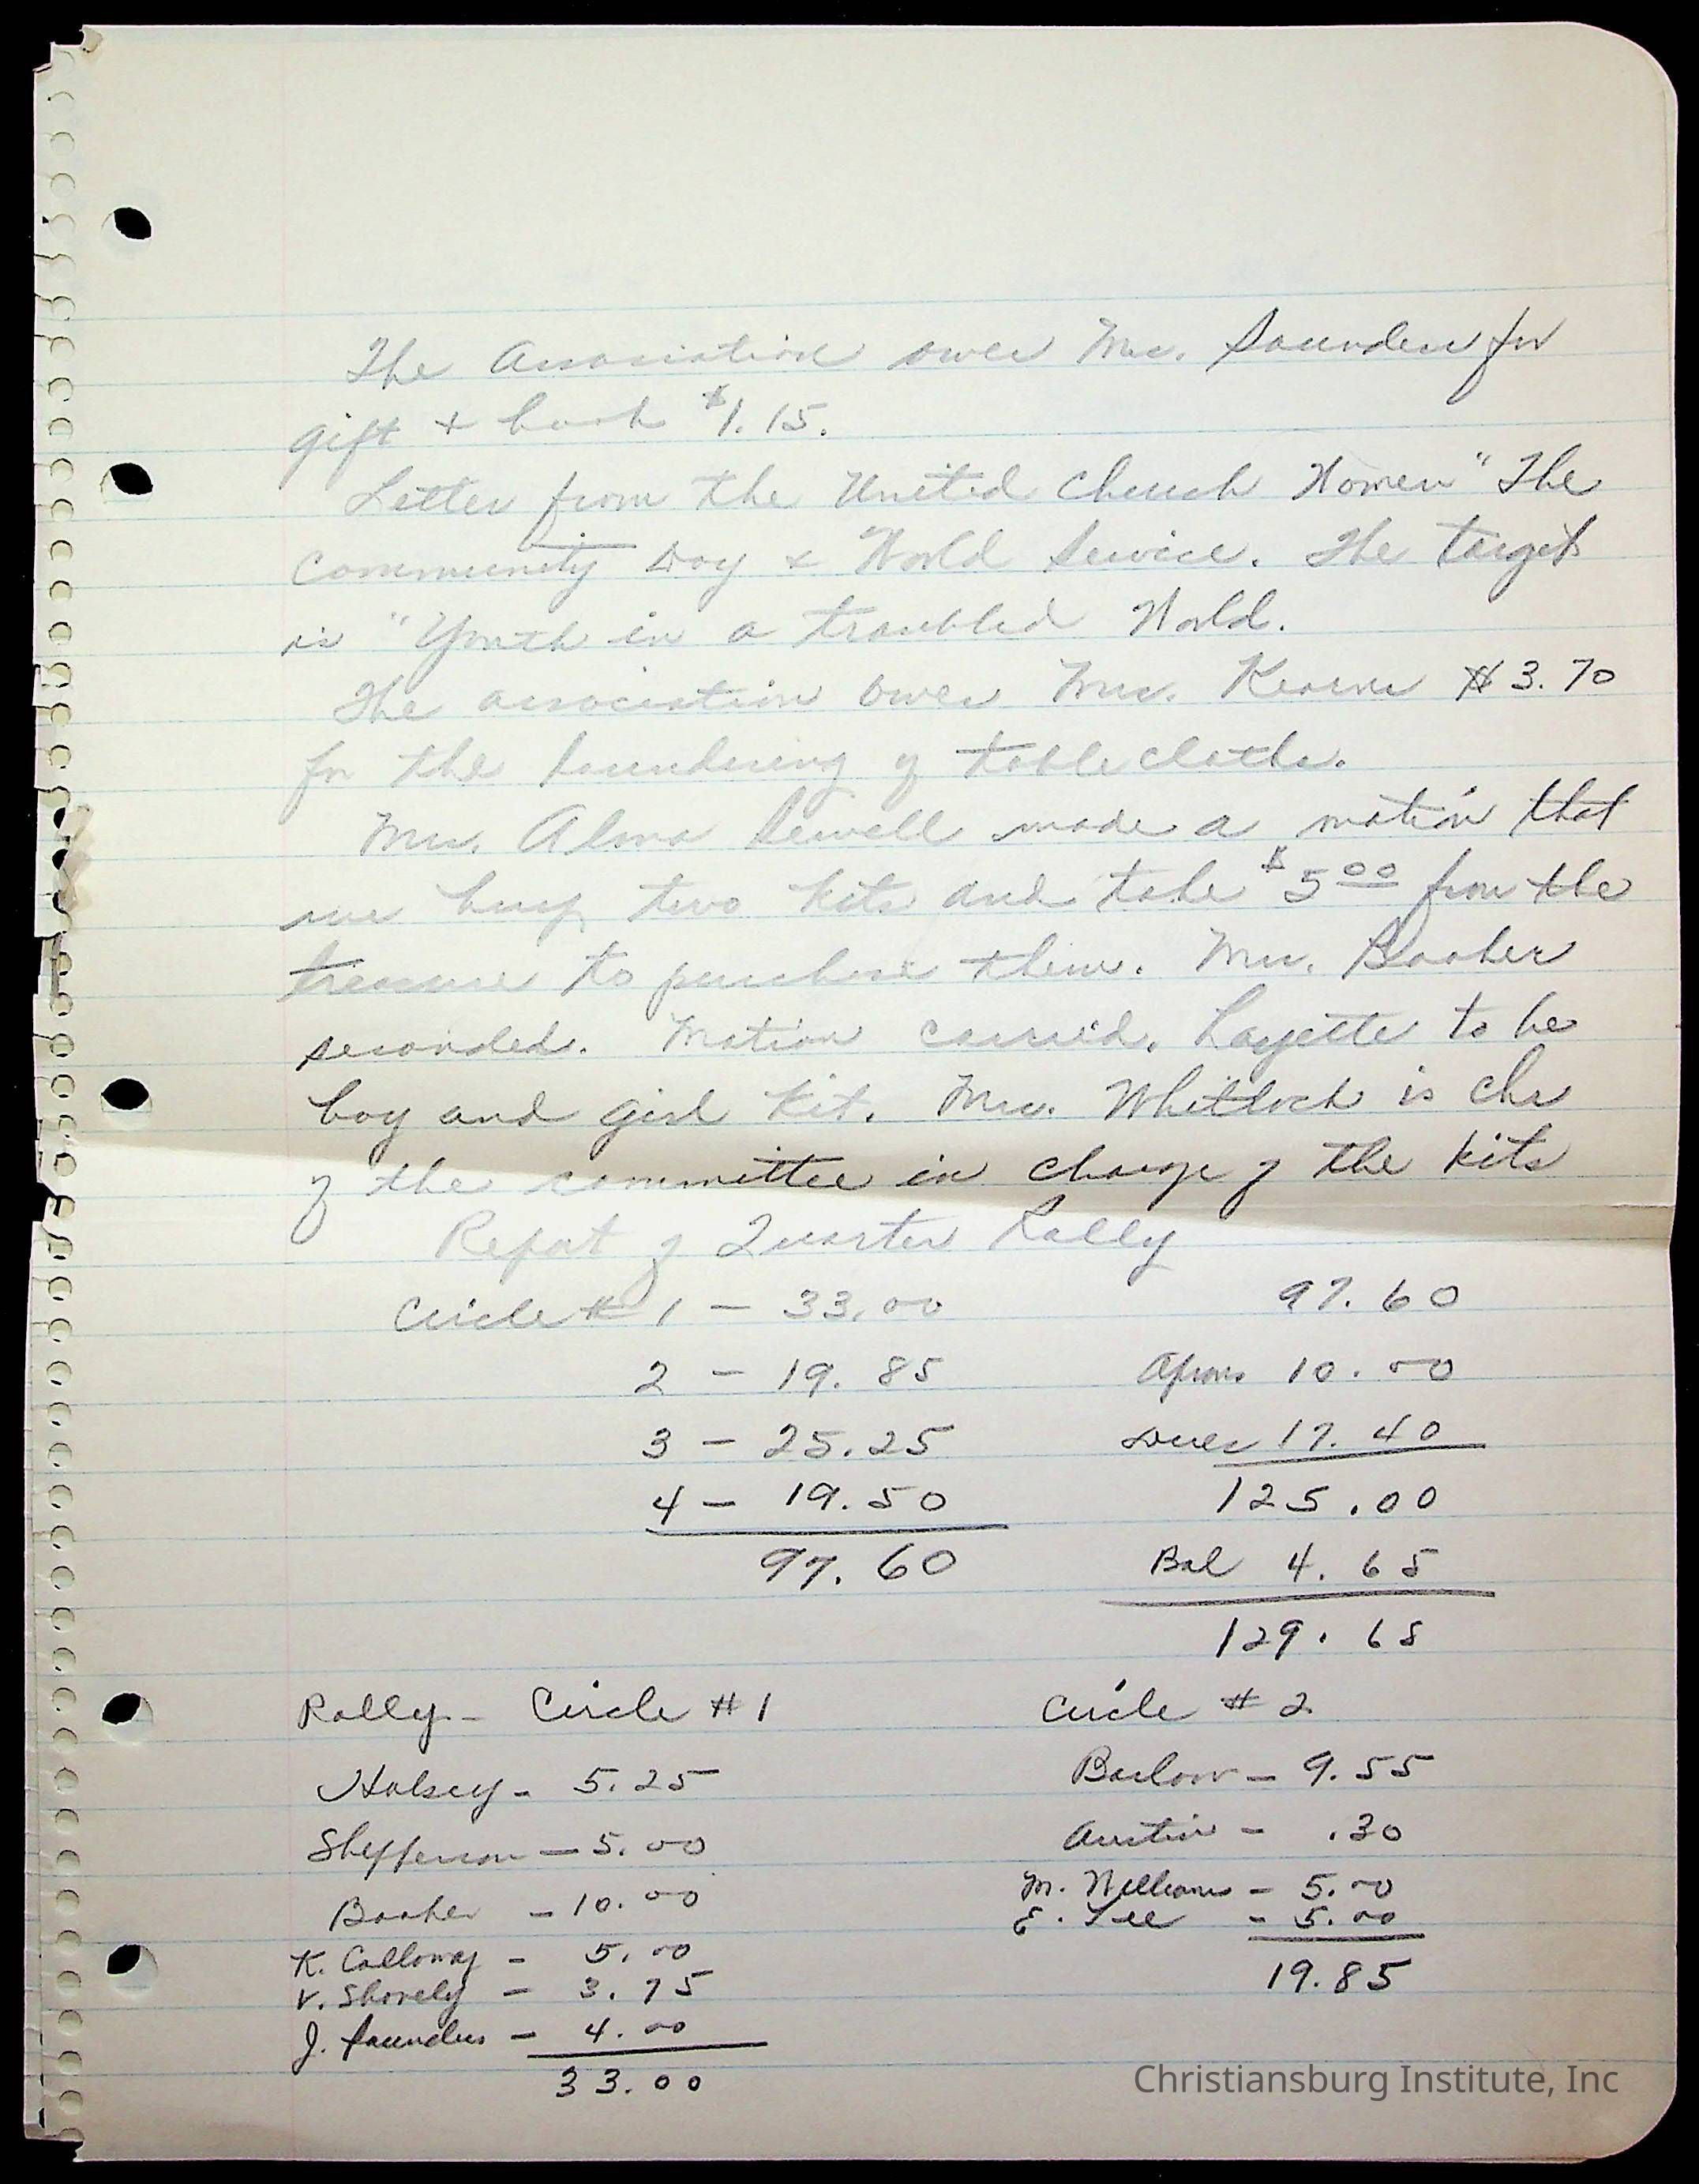 The Association owes Mrs. Saunders for
gift + book $1.15.
Letter from the United Church Women "The
Community Day & World Service. The target
is "Youth in a troubled World.
The association owes Mrs. Kearns $3.70
for the laundering of table cloths.
Mrs. Alma Sewell made a motion that
we buy two kits and take $5.00 from the
treasure to purchase them. Mrs. Booher
seconded. Motion carried. Layette to be
boy and girl kit. Mrs. Whitlock is chr
of the committee in charge of the kits
Report of Quarter Rally
Circle # 1 - 33.00 97.60
2 - 19.85 Aprons 10.00
3 - 25.25 Dues 17.40
4 - 19.50 125.00
97.60 Bal 4.65
129.65
Rally - Circle # 1 Circle # 2
Holsey - 5.25 Barlow - 9.55
Shefferson - 5.00 Austin - .30
Booher - 10.00 M. Williams - 5.00
E. Lee - 5.00
K. Calloway - 5.00
V. Shovely - 3.75 19.85
J. Saunders - 4.00
33.00
Christiansburg Institute, Inc